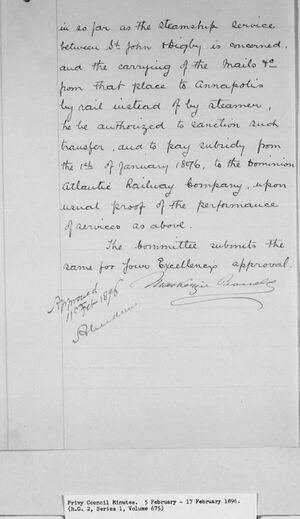 in so far as the steamship service
between St. John & Digby is concerned,
and the carrying of the Mails &c
from that place to Annapolis
by rail instead of by steamer,
he be authorized to sanction such
transfer, and to pay subsidy from
the 1st of January 1896, to the Dominion
Atlantic Railway Company, upon
usual proof of the performance
of services as above.
The Committee submits the
same for Your Excellency's approval.
Mackenzie Bowell
Approved
11 Feb 1896
Aberdeen
Privy Council Minutes. 5 February - 17 February 1896.
(R.G. 2, Series 1, Volume 675)